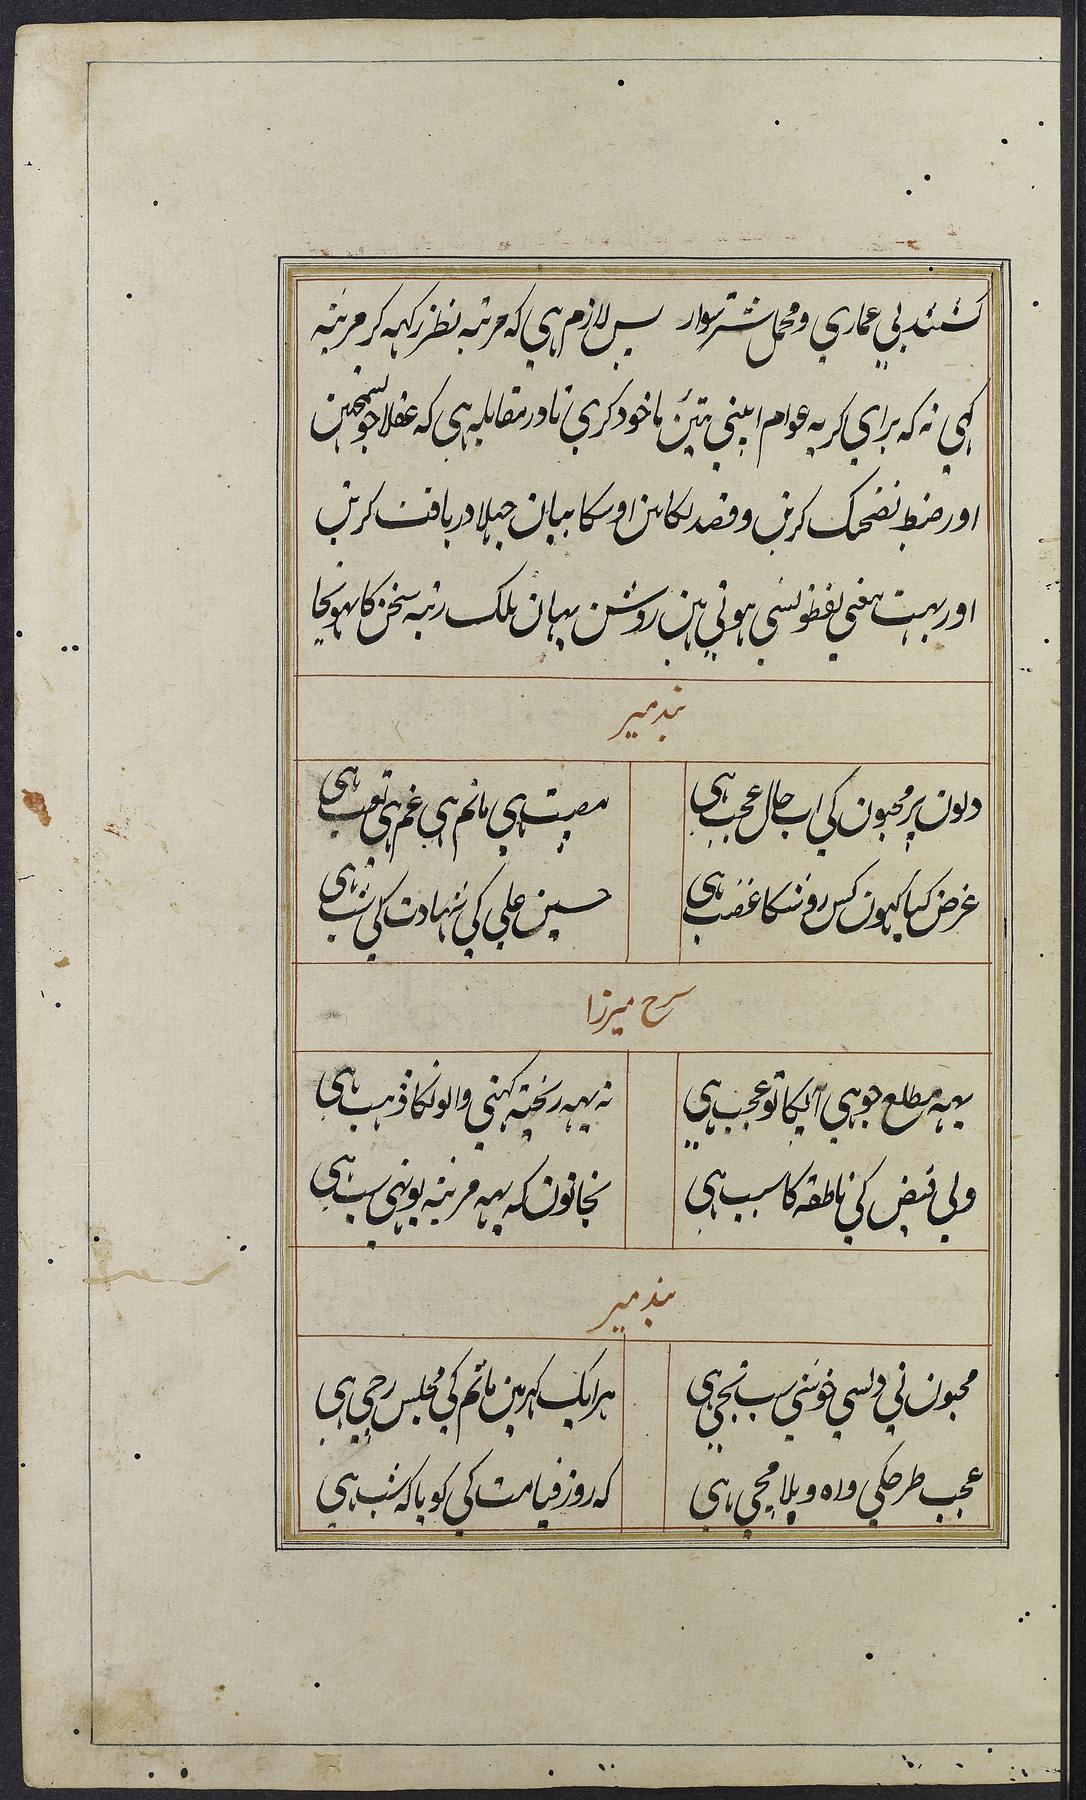 کشتند بی عماری و محمل شتر سوار پس لازم ہی کہ مرتبہ نظر رکہہ کر مرثیہ
کہی نہ کہ برای گریہ عوام اپنی تئین ماخوذ کری نادر مقابلہ ہی کہ عقلا جو سمجہین
اور ضبط تضحک کرین و قصد بکا مین اوسکا بیان جہلا دریافت کرین
اور بہت معنی لفظونسی ہوتی ہین روشن یہان تلک رتبہ سخن کا پہونچا
بند میر
دلون پر محبون کی اب حال عجب ہی
مصیبت ہی ماتم ہی غم ہی تعب ہی
غرض کیا کہون کس روشکا غضب ہی
حسین علی کی شہادت کی شب ہی
شرح میرزا
یہہ مطلع جو ہی آپکا تو عجب ہی
نہ یہہ ریختہ کہنی والونکا ڈہب ہی
ولی فیض کی ناطقہ کا سبب ہی
نجانون کہ یہہ مرثیہ یونہی سب ہی
بند میر
محبون نی دلسی خوشی سب تجی ہی
ہر ایک گہر مین ماتم کی مجلس رچی ہی
عجب طرحکی واہ ویلا مچی ہی
کہ روز قیامت کی گویا کہ شب ہی